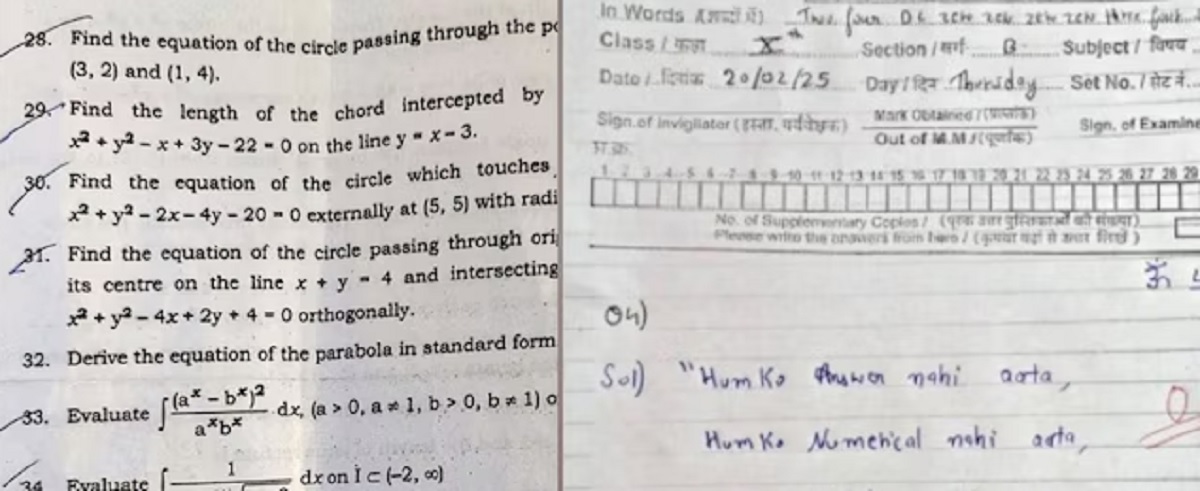 28. Find the equation of the circle passing through the
(3, 2) and (1, 4).
29. Find the length of the chord intercepted by
x² + y² – x + 3y – 22 = 0 on the line y = x – 3.
30. Find the equation of the circle which touches
x² + y² – 2x – 4y – 20 = 0 externally at (5, 5) with radi
31. Find the equation of the circle passing through ori
its centre on the line x + y = 4 and intersecting
x² + y² – 4x + 2y + 4 = 0 orthogonally.
32. Derive the equation of the parabola in standard form
33. Evaluate ∫ (aˣ – bˣ)² / aˣbˣ dx, (a > 0, a ≠ 1, b > 0, b ≠ 1) o
34 Evaluate ∫ 1 dx on I ⊂ (–2, ∞)
In Words (शब्दों में) four
Class / कक्षा X th Section / वर्ग B Subject / विषय
Date / दिनांक 20/02/25 Day / दिन Thursday Set No. / सेट नं.
Sign. of Invigilator Mark Obtained / Sign. of Examine
Out of M.M / (पूर्णांक)
1 2 3 4 5 6 7 8 9 10 11 12 13 14 15 16 17 18 19 20 21 22 23 24 25 26 27 28 29
No. of Supplementary Copies / (पूरक उत्तर पुस्तिकाओं की संख्या)
Please write the answers from here / (कृपया यहां से उत्तर लिखें)
ॐ
04)
Sol) "Hum Ko Answer nahi aata,
Hum Ko Numerical nahi aata,